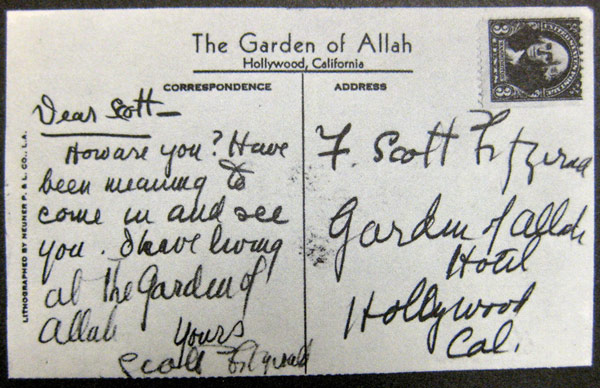 The Garden of Allah
Hollywood, California
CORRESPONDENCE
ADDRESS
Dear Scott—
How are you? Have
been meaning to
come in and see
you. I have living
at the Garden of
Allah
Yours
Scott Fitzgerald
F. Scott Fitzgerald
Garden of Allah
Hotel
Hollywood
Cal.
LITHOGRAPHED BY NEUNER P. & L. CO., L.A.
3 3